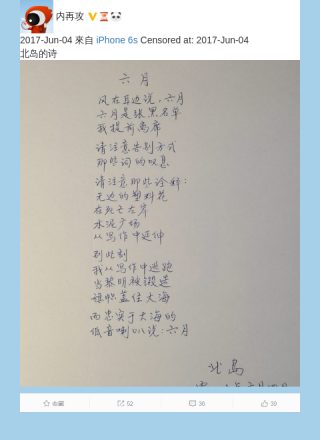 内再攻
2017-Jun-04 來自 iPhone 6s Censored at: 2017-Jun-04
北岛的诗
六月
风在耳边说，六月
六月是张黑名单
我提前离席
请注意告别方式
那些词的叹息
请注意那些诠释：
无边的塑料花
在死亡左岸
水泥广场
从写作中延伸
到此刻
我从写作中逃跑
当黎明被锻造
旗帜盖住大海
而忠实于大海的
低音喇叭说：六月
北岛
收藏
52
36
39